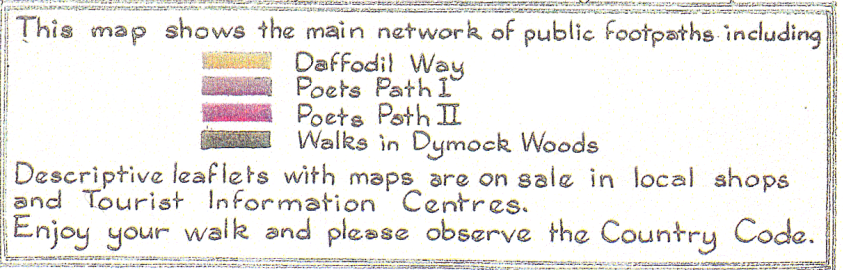 This map shows the main network of public footpaths including
Daffodil Way
Poets Path I
Poets Path II
Walks in Dymock Woods
Descriptive leaflets with maps are on sale in local shops
and Tourist Information Centres.
Enjoy your walk and please observe the Country Code.